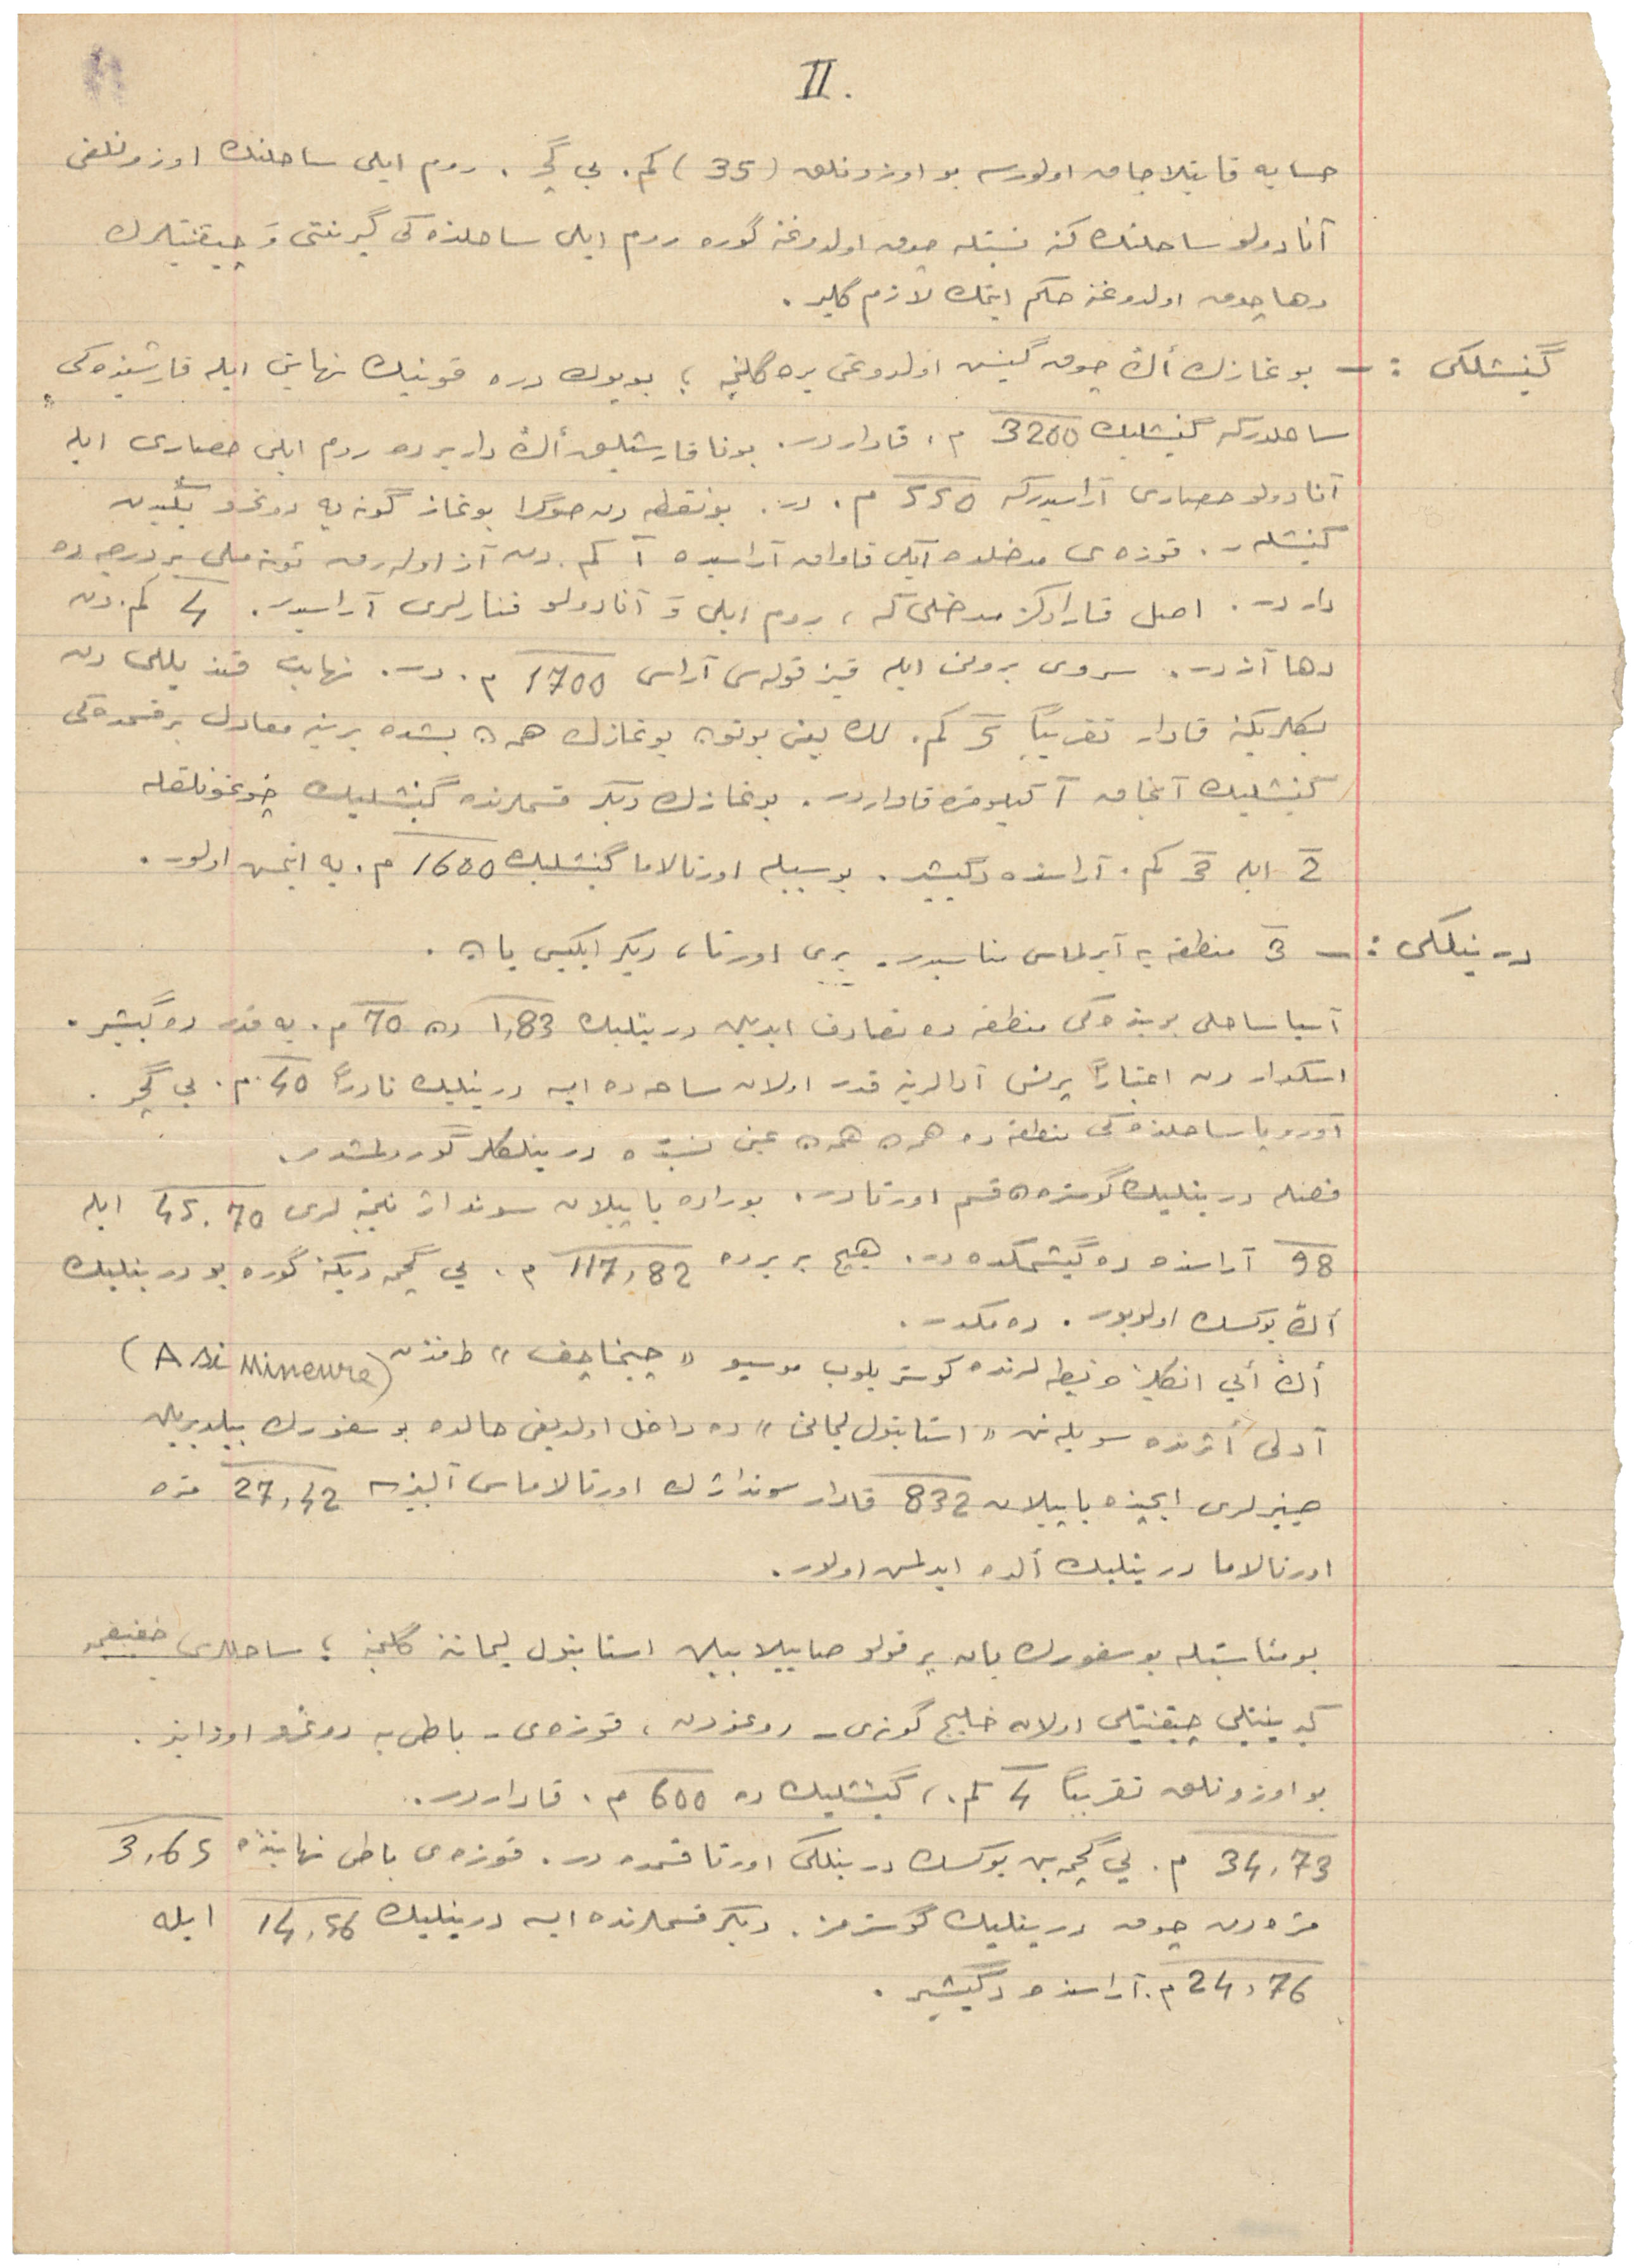 II.
حسابه قاتیلاجاق اولورسه بو اوزونلق (35) کم. یی گچر. روم ایلی ساحلنك اوزونلغی
آنادولو ساحلنك كنه نسبتله چوق اولدوغنه گوره روم ایلی ساحلنده کی گیرنتی وَ چیقنتیلرك
دها چوق اولدوغنه حکم ایتمك لازم گلیر.
گنیشلکی : — بوغازك أڭ چوق گنیش اولدوغی یره گلنجه ؛ بویوك دره قوینك نهایتی ایله قارشیسنده کی
ساحلدركه گنیشلیك 3200 م. قاداردر. بوڭا قارشیلق أڭ دار یرده روم ایلی حصاری ایله
آنادولو حصاری آراسیدركه 550 م. در. بو نقطه دن صوڭرا بوغاز گونه یه دوغرو یڭیدن
گنیشلر. قوزه ی مدخلده ایکی قاواق آراسیده 1 کم. دن آز اولارق ئونه ملی بر درجه ده
داردر. اصل قارادڭز مدخلی که ، روم ایلی وَ آنادولو فنارلری آراسیدر. 4 کم. دن
دها آزدر. سروی برونی ایله قیز قوله سی آراسی 1700 م. در. نهایت قندیللی دن
بكلربكنه قادار تقریباً 5 کم. لك یعنی بوتون بوغازك همان بشده برینه معادل بر قسمده کی
گنیشلیك آنجاق 1 كیلومتره قاداردر. بوغازك دیگر قسملرنده گنیشلیك چوغونلقله
2 ایله 3 کم. آراسنده دگیشیر. بو سببله اورتالاما گنیشلیك 1600 م. یه ایتمش اولور.
درینلکی : — 3 منطقه یه آیرلماسی مناسبدر. بری اورتا، دیگر ایکیسی یان.
آسیا ساحلی بوینده کی منطقه ده تصادف ایدیلن درینلیك 1,83 دن 70 م. یه قدر ده گیشیر.
اسکدار دن اعتباراً پرنس آدالرینه قدر اولان ساحه ده ایسه درینلیك نادراً 40 م. یی گچر.
آوروپا ساحلنده کی منطقه ده همان همان عینی نسبتده درینلکلر گورولمشدر.
فضله درینلیك گوسترن قسم اورتادر. بوراده یاپیلان سونداژ نتیجه لری 45,70 ایله
98 آراسنده ده گیشمکده در. هیچ بر یرده 117,82 م. یی گچمه دیگنه گوره بو درینلیك
أڭ یوكسك اولویور. ده مکدر.
أڭ أیی انگلیز خریطه لرنده گوستریلوب موسیو « چیخاچف » طرفندن (Asi Mineure)
آدلی أثرنده سویله نن « استانبول لیمانی » ده داخل اولدیغی حالده بوسفورك بیلدیریلن
چیزلری ایچنده یاپیلان 832 قادار سونداژك اورتالاماسی آلینیرسه 27,42 متره
اورتالاما درینلیك ألده ایدلمش اولور.
بو مناسبتله بوسفورك یان بر قولو صاییلابیلن استانبول لیماننه گلنجه ؛ ساحللری خفیفجه
گیرینتیلی چیقنتیلی اولان خلیج گونه ی - دوغودن ، قوزه ی - باطی یه دوغرو اوزانیر.
بو اوزونلق تقریباً 4 کم. ، گنیشلیك ده 600 م. قاداردر.
34,73 م. یی گچمه ین یوكسك درینلکی اورتا قسمده در. قوزه ی باطی نهایتنده 3,65
متره دن چوق درینلیك گوسترمز. دیگر قسملرنده ایسه درینلیك 14,56 ایله
24,76 م. آراسنده دگیشیر.